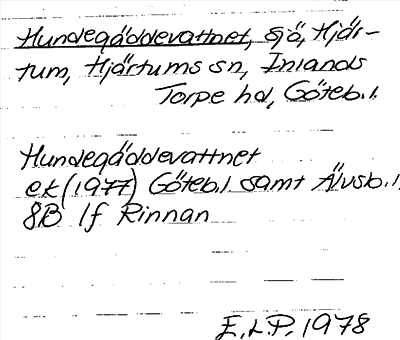 Hundegäddevattnet, sjö, Hjär-
tum, Hjärtums sn, Inlands
Torpe hd, Göteb.l.
Hundegäddevattnet
ek (1977) Göteb.l samt Älvsb.l.
8B 1f Rinnan
E.L.P. 1978